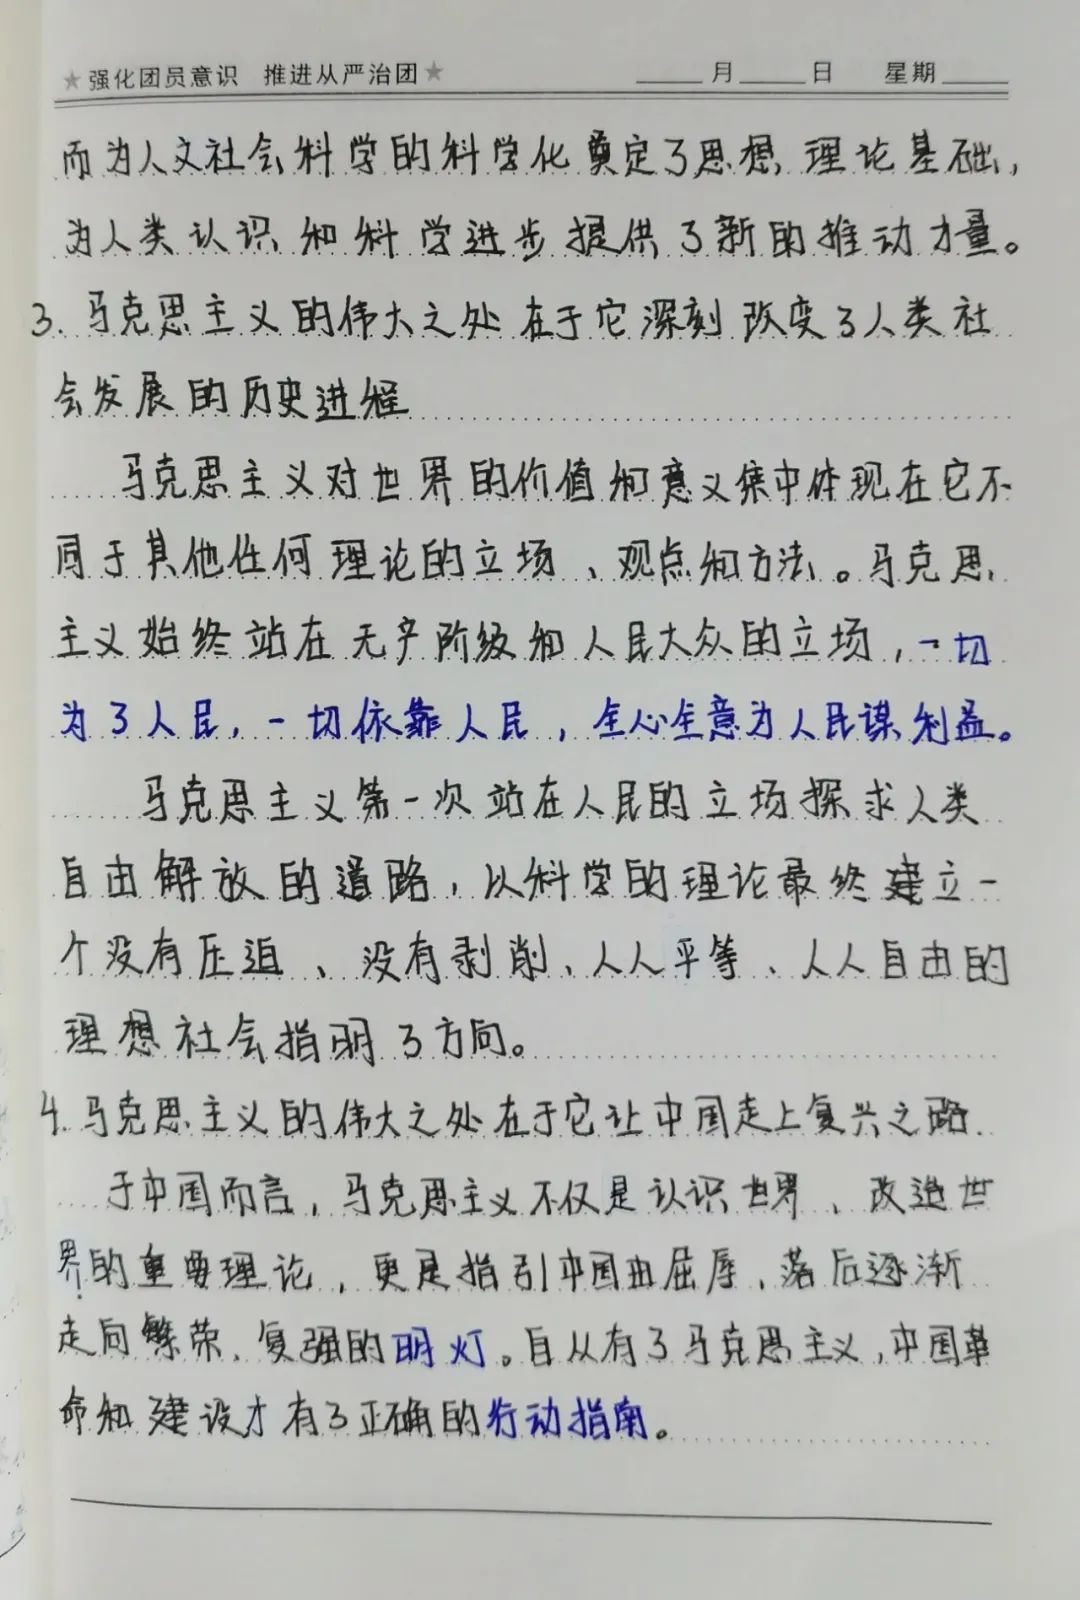 ★强化团员意识 推进从严治团★ ____月____日 星期____
而为人文社会科学的科学化奠定了思想理论基础,
为人类认识和科学进步提供了新的推动力量。
3.马克思主义的伟大之处在于它深刻改变了人类社
会发展的历史进程
马克思主义对世界的价值和意义集中体现在它不
同于其他任何理论的立场、观点和方法。马克思
主义始终站在无产阶级和人民大众的立场,一切
为了人民,一切依靠人民,全心全意为人民谋利益。
马克思主义第一次站在人民的立场探求人类
自由解放的道路,以科学的理论最终建立一
个没有压迫、没有剥削、人人平等、人人自由的
理想社会指明了方向。
4.马克思主义的伟大之处在于它让中国走上复兴之路
于中国而言,马克思主义不仅是认识世界、改造世
界的重要理论,更是指引中国由屈辱、落后逐渐
走向繁荣、复强的明灯。自从有了马克思主义,中国革
命和建设才有了正确的行动指南。